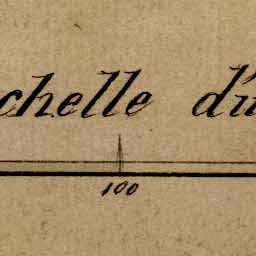 chelle d'u
100